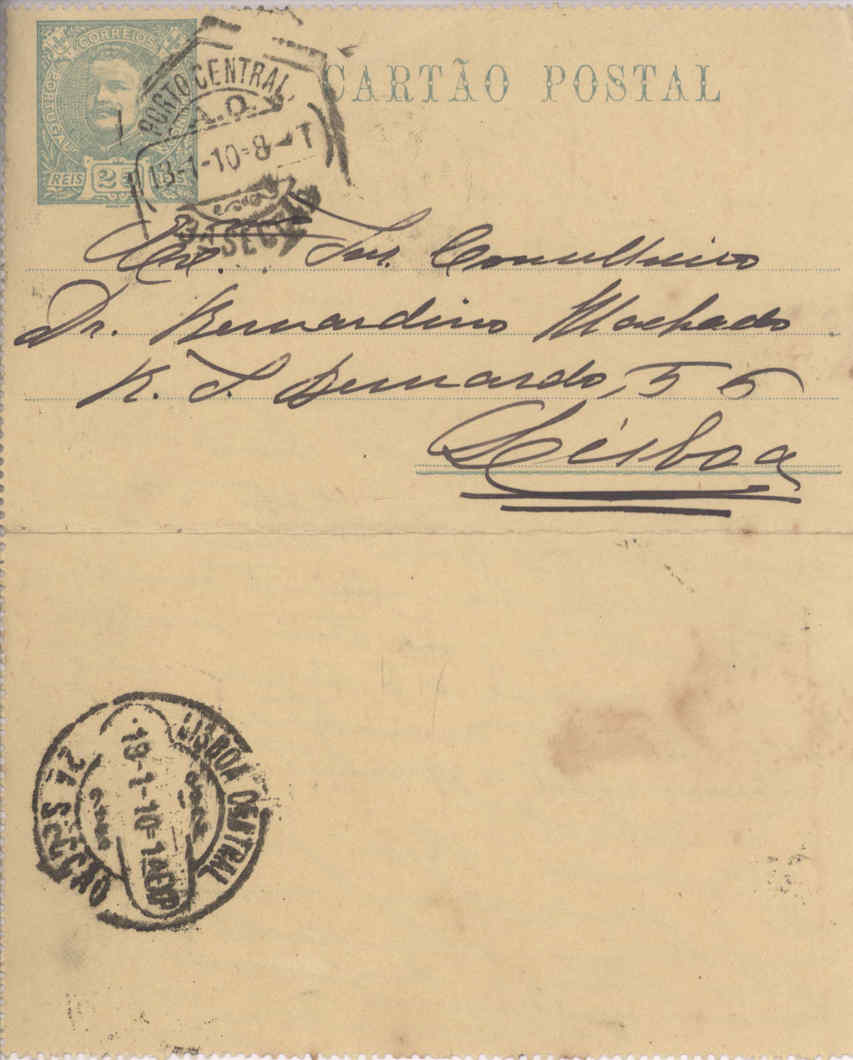 CORREIOS
PORTUGAL
REIS 25
CARTÃO POSTAL
PORTO CENTRAL
18-1-10=8-T
SECÇÃO
Ex. Snr. Conselheiro
Dr. Bernardino Machado
R. S. Bernardo, 56
Lisboa
LISBOA CENTRAL
19-1-10=1
2A SECÇÃO